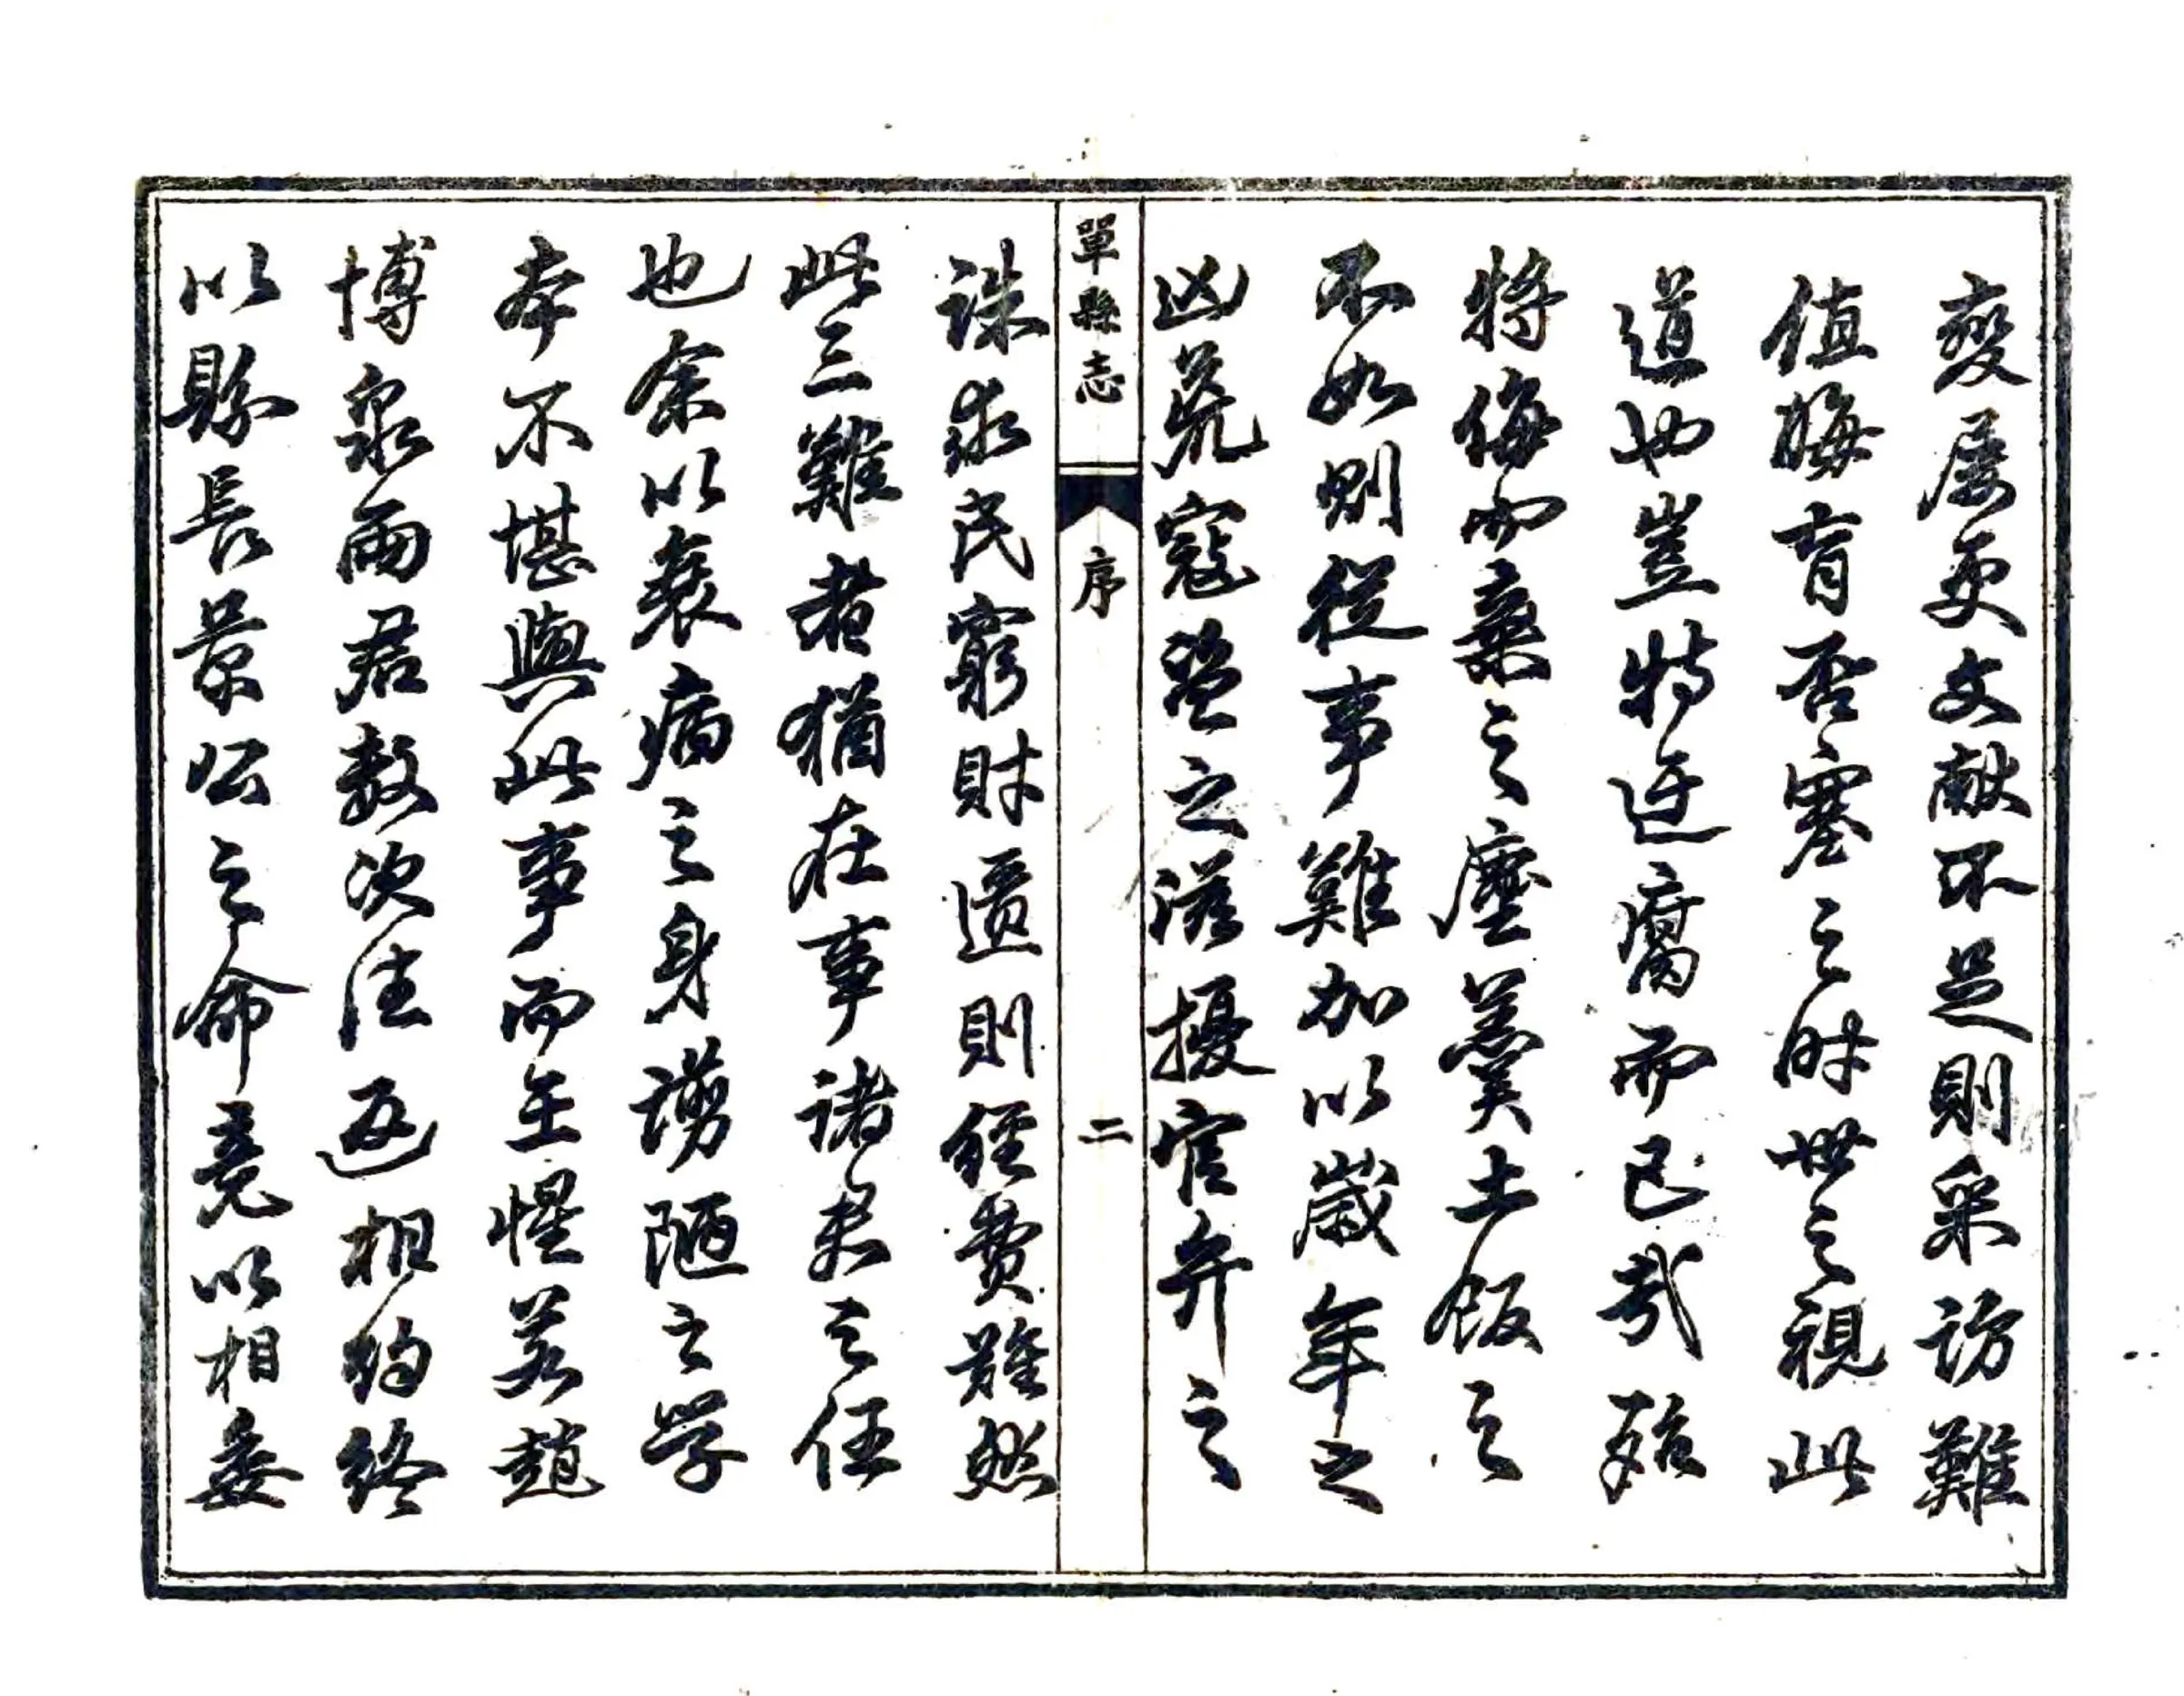 變屢更文獻不足則采訪難
值晦盲否塞之時世之視此
道也豈特迂腐而已哉殆
將侮而棄之塵羹土飯之
不如則從事難加以歲年之
凶荒寇盜之滋擾官弁之
單縣志
序
二
誅求民窮財匱則經費難然
此三難者猶在事諸君之任
也余以衰病之身謭陋之學
本不堪與此事而王惺若趙
博泉兩君數次往返相約終
以縣長景公之命竟以相委